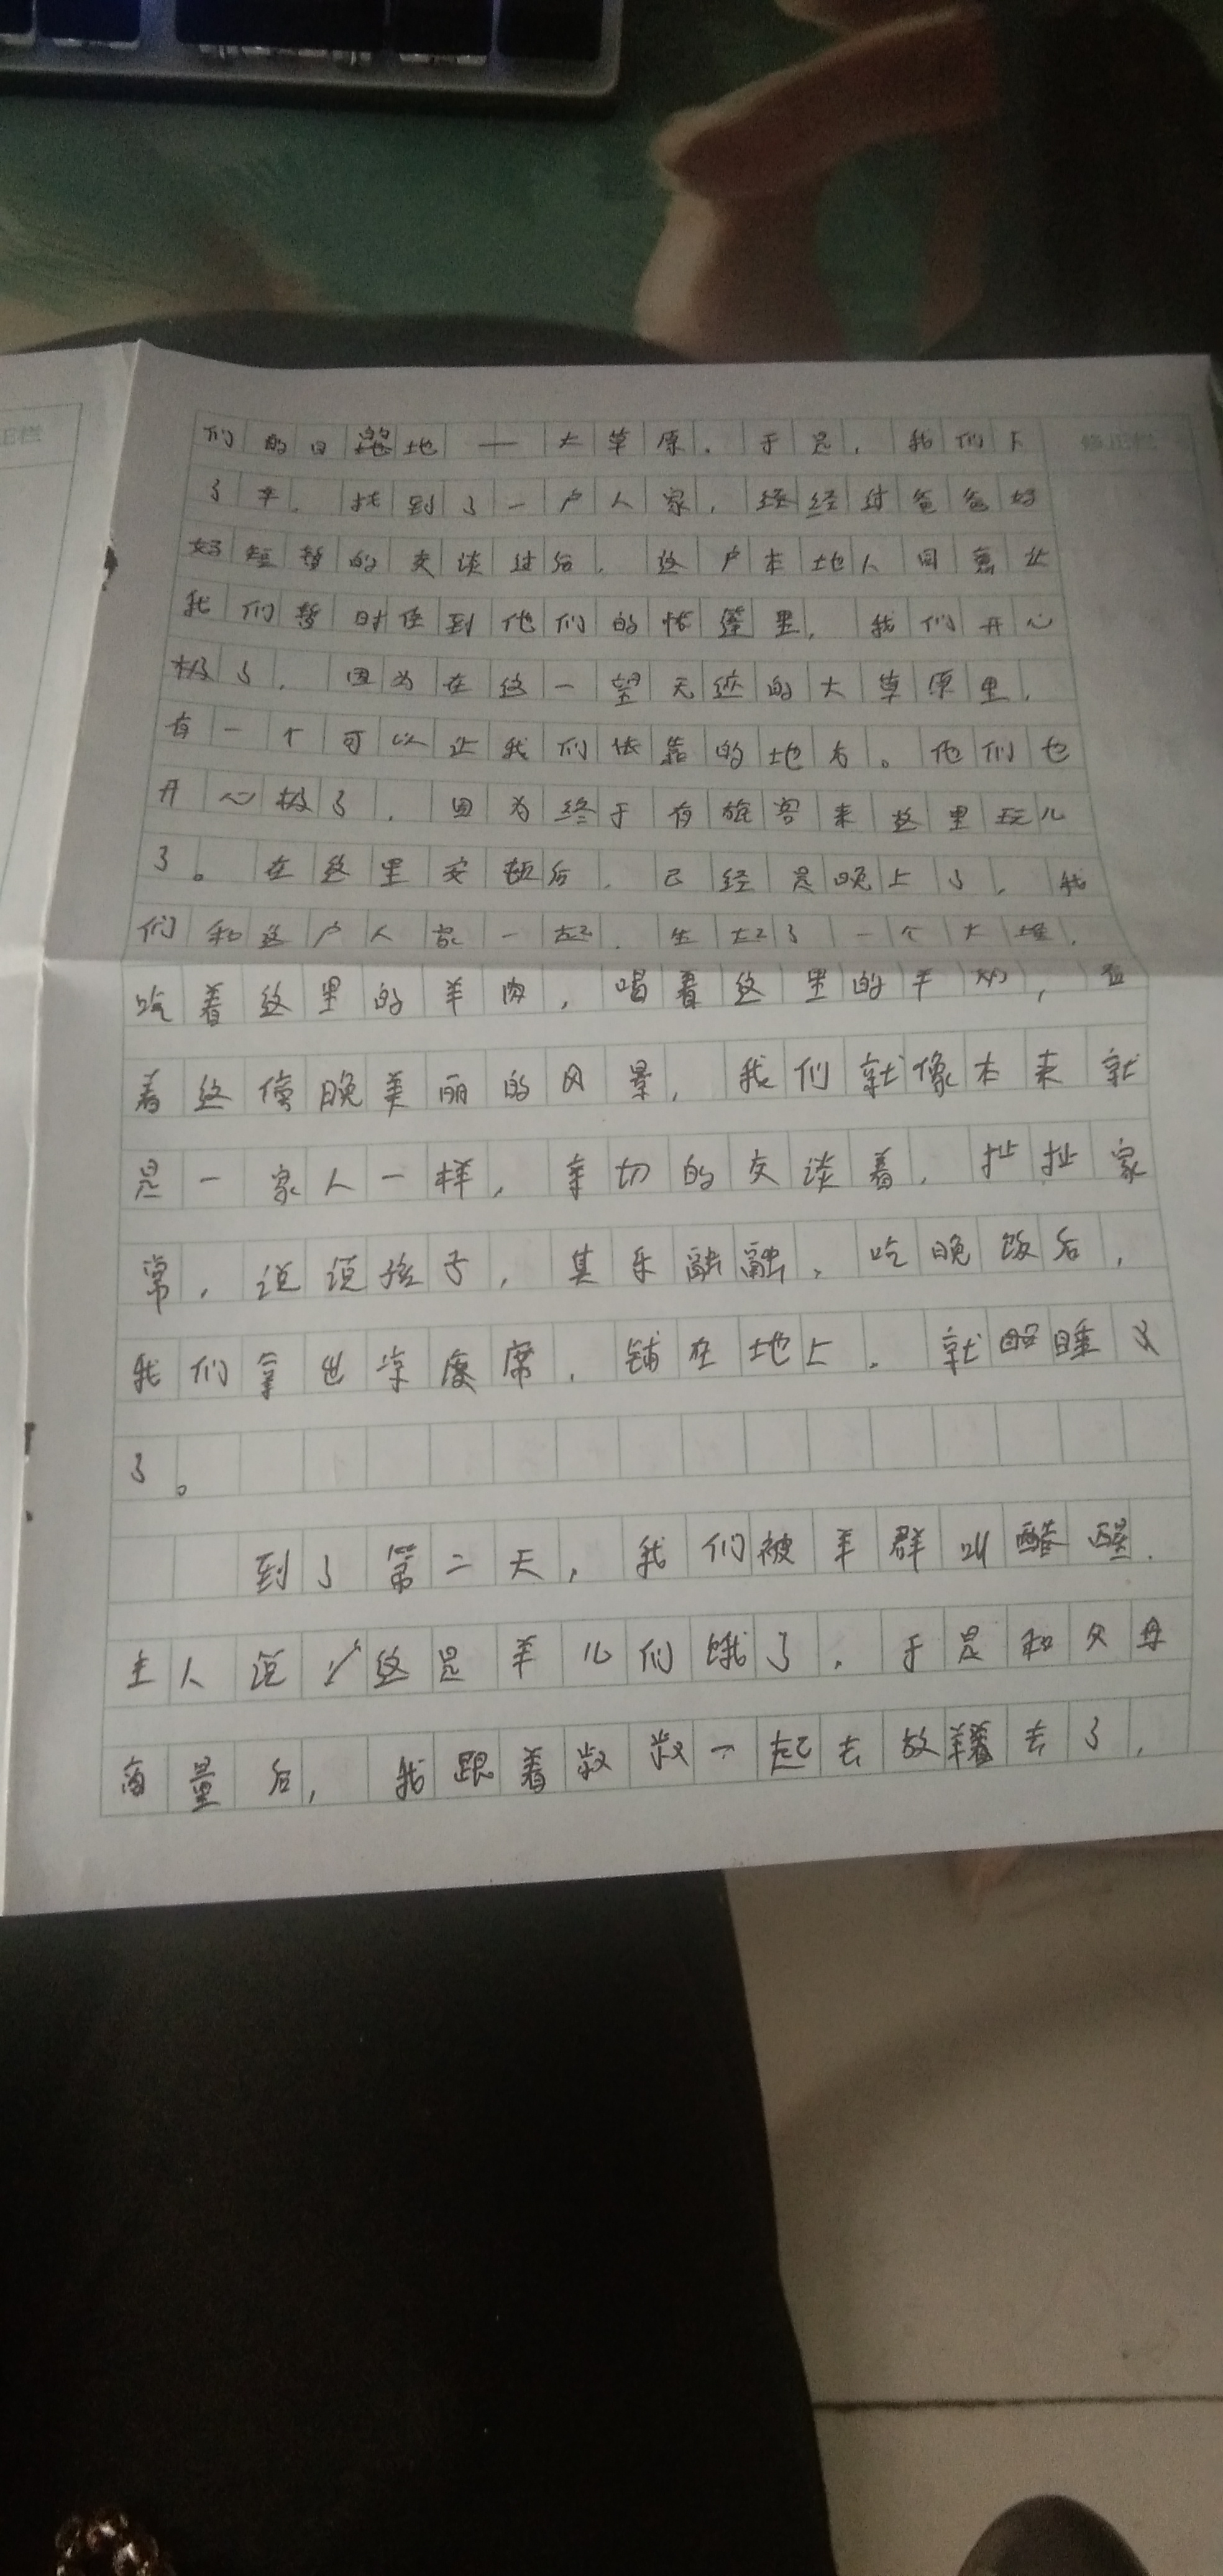 正栏
修正栏
们的目的地——大草原。于是，我们下
了车，找到了一户人家，经经过爸爸好
好短暂的交谈过后，这户本地人同意让
我们暂时住到他们的帐篷里，我们开心
极了，因为在这一望无迹的大草原里，
有一个可以让我们依靠的地方。他们也
开心极了，因为终于有旅客来这里玩儿
了。在这里安顿后，已经是晚上了，我
们和这户人家一起，生起了一个大堆，
吃着这里的羊肉，喝着这里的羊奶，
着这傍晚美丽的风景，我们就像本来就
是一家人一样，亲切的交谈着，扯扯家
常，说说孩子，其乐融融，吃晚饭后，
我们拿出凉席，铺在地上，就睡
了。
到了第二天，我们被羊群叫醒，
主人说这是羊儿们饿了，于是和父母
商量后，我跟着叔叔一起去放羊去了，